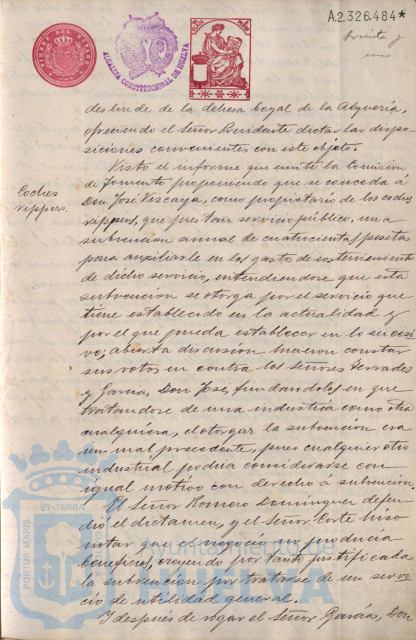 A.2.326.484*
treinta y
uno
TIMBRE DEL ESTADO
ALCALDIA CONSTITUCIONAL DE HUELVA
deslinde de la dehesa boyal de la Alquería,
ofreciendo el Señor Presidente dictar las dispo
siciones convenientes con este objeto.
Coches
rippers.
Visto el informe que emite la Comision
de Fomento proponiendo que se conceda á
Don José Vizcaya, como propietario de los coches
rippers, que prestan servicio público, una
subvencion annual de cuatrocientas pesetas
para auxiliarle en los gastos de sostenimiento
de dicho servicio, entendiendose que esta
subvencion se otorga por el servicio que
tiene establecido en la actualidad y
por el que pueda establecer en lo sucesi
vo, abierta discusión hicieron constar
sus votos en contra los Señores Terrades
y García, Don José, fundandolos en que
tratandose de una industria como otra
cualquiera, el otorgar la subvencion era
un mal precedente, pues cualquier otro
industrial podria considerarse con
igual motivo con derecho a subvencion.
El Señor Romero Dominguez defen
dió el dictamen, y el Señor Corte hizo
notar que el negocio no producia
beneficios, creyendo por tanto justificada
la subvencion por tratarse de un servi
cio de utilidad general.
Y despues de rogar el Señor García, Don
PORTUS MARIS ET TERRÆ
Ayuntamiento de
HUELVA